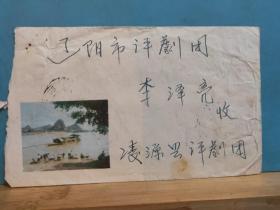 辽阳市评劇团
李泽亮
收
凌源县评劇团